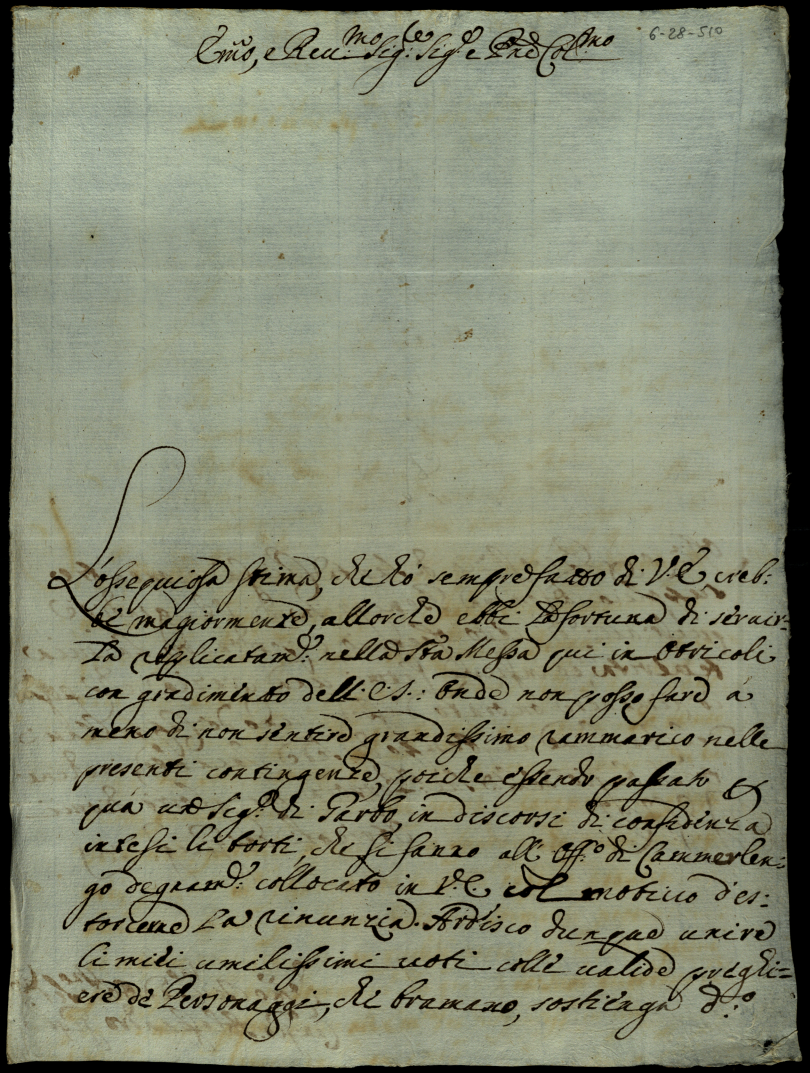 Emo, e Reu.mo Sig.re Sig.re e Pne Col.mo
6-28-510
L'ossequiosa stima, che hò sempre fatto di V.E. creb:
be magiormente, allorche ebbi la fortuna di servir-
la replicatam.e nella S.ta Messa qui in Otricoli
con gradimento dell'E.S.: Onde non posso fare à
meno di non sentire grandissimo rammarico nelle
presenti contingenze, poiche essendo passato
quà un Sig.re di Garbo, in discorsi di confidenza
intesi li torti, che si fanno all'Off.o di Cammerlen:
go degnam.e collocato in V.E. col motivo d'es:
torcerne la rinunzia. Ardisco dunque unire
li miei umilissimi voti colle valide preghi=
ere de Personaggi, che bramano, sostienga d.o